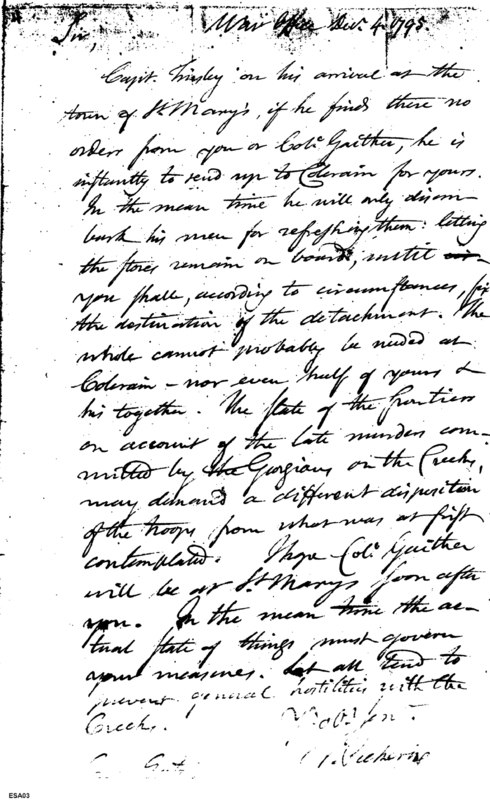 War Office Decr. 4. 1795.
Sir,
Capt. Tinsley on his arrival at the
town of St. Mary's, if he finds there no
orders from you or Colo. Gaither, he is
instantly to send up to Colerain for yours.
In the mean time he will only disem
bark his men for refreshing them: letting
the stores remain on board, until
you shall, according to circumstances, fix
the destination of the detachment. The
whole cannot probably be needed at
Colerain - nor even half of yours &
his together. The state of the frontiers
on account of the late murders com-
mitted by the Georgians on the Creeks,
may demand a different disposition
of the troops from what was at first
contemplated. I hope Colo. Gaither
will be at St. Marys soon after
you. In the mean time the ac-
tual state of things must govern
your measures. Let all tend to
prevent general hostilities with the
Creeks. Yr obt. servt.
Pickering
ESA03